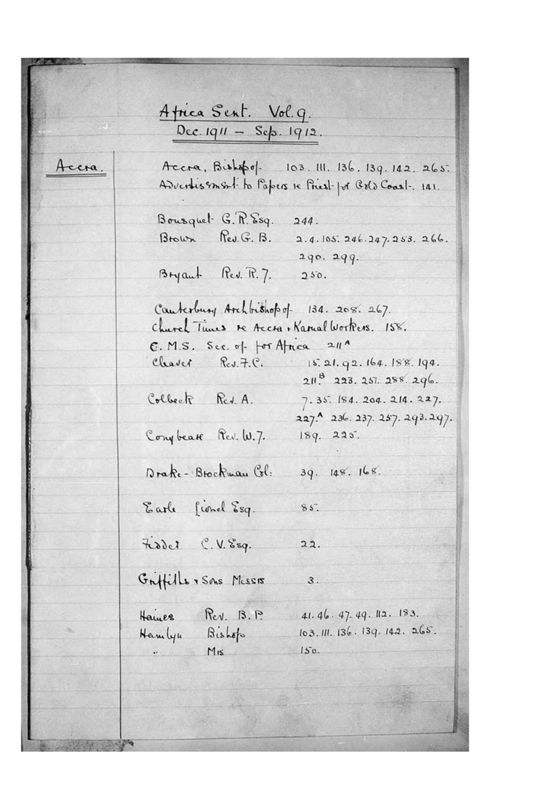 Africa Sent. Vol. 9.
Dec. 1911 — Sep. 1912.
Accra.
Accra, Bishop of 103. 111. 136. 139. 142. 265.
Advertisement to Papers re Priest for Gold Coast. 141.
Bousquet G. R. Esq. 244.
Brown Rev. G. B. 2. 4. 105. 246. 247. 253. 266.
290. 299.
Bryant Rev. R. J. 250.
Canterbury Archbishop of 134. 208. 267.
Church Times re Accra & Karnal Workers. 158.
C. M. S. Sec. of for Africa 211A
Cleaver Rev. F. C. 15. 21. 92. 164. 188. 194.
211.B 223. 251. 288. 296.
Colbeck Rev. A. 7. 35. 184. 204. 214. 227.
227.A 236. 237. 257. 293. 297.
Conybeare Rev. W. J. 189. 225.
Drake-Brockman Col: 39. 148. 168.
Earle Lionel Esq. 85.
C. V. Esq. 22.
Griffiths & Sons Messrs 3.
Haines Rev. B. P. 41. 46. 47. 49. 112. 183.
Hamlyn Bishop 103. 111. 136. 139. 142. 265.
" Mrs 150.